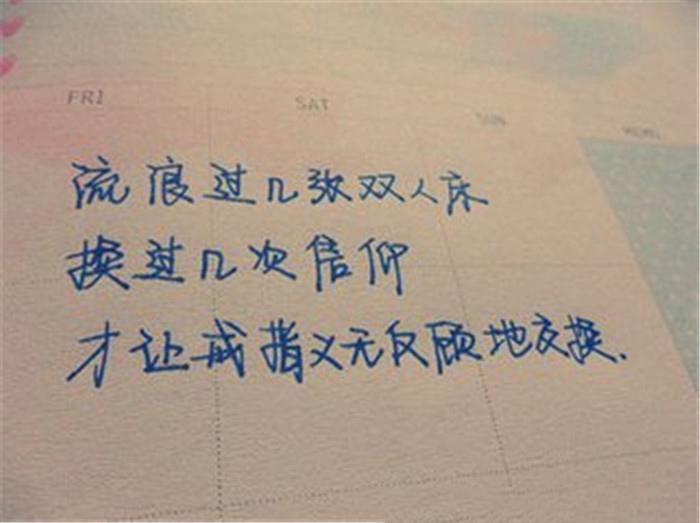 FRI SAT SUN MEMO
流浪过几张双人床
换过几次信仰
才让戒指义无反顾地交换.